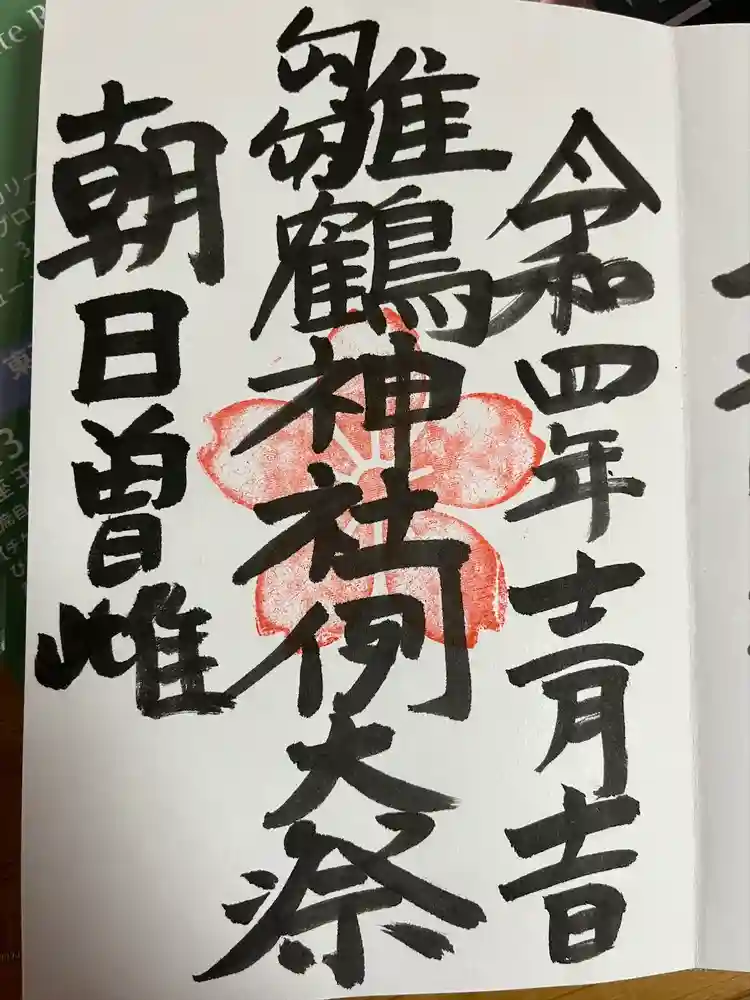 令和四年十二月吉日
雛鶴神社例大祭
朝日曽雌